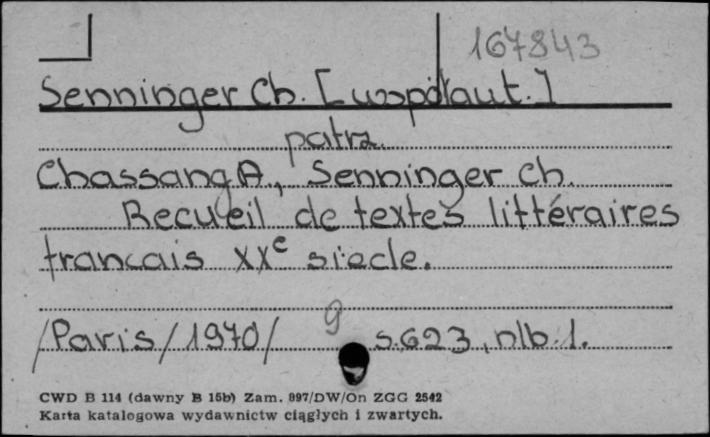 167843
Senninger Ch. [współaut.]
patrz
Chassang A., Senninger Ch.
Recueil de textes littéraires
francais XXe siecle.
9
/Paris/1970/ s.623, nlb.1.
CWD B 114 (dawny B 15b) Zam. 997/DW/On ZGG 2542
Karta katalogowa wydawnictw ciągłych i zwartych.